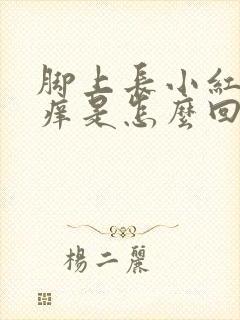 脚上長小紅
痒是怎麼回
楊二麗